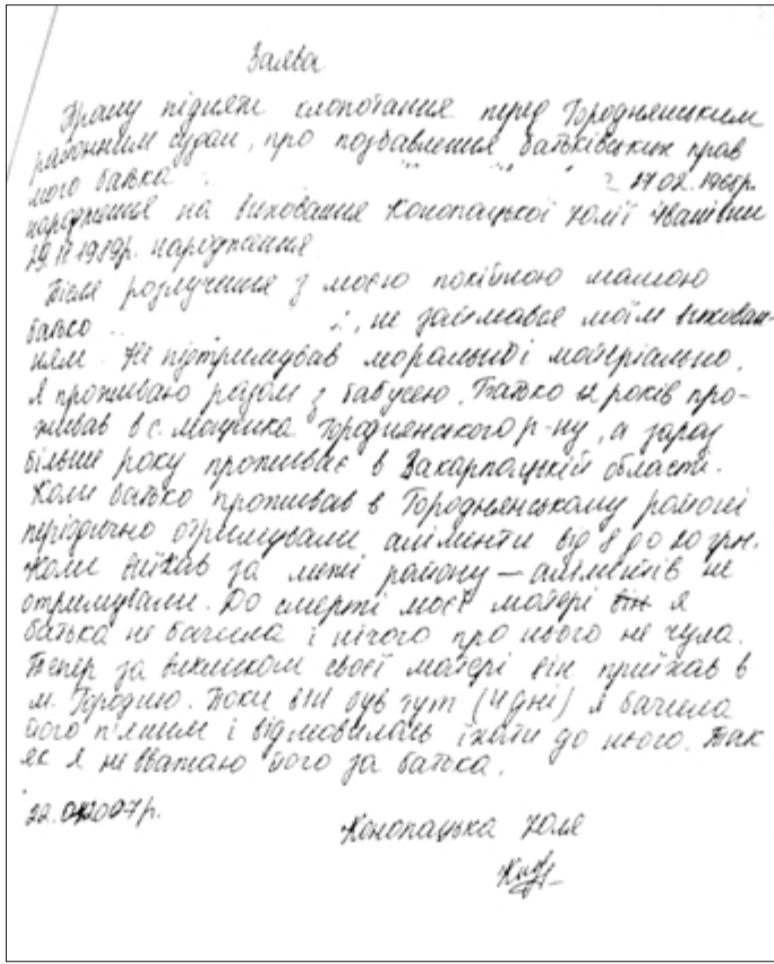 Заява
Прошу підняти клопотання перед Городнянським
районним судом, про позбавлення батьківських прав
мого батька 27.02.1965р.
народження на виховання Конопацької Юлії Іванівни
народження
Після розлучення з моєю покійною мамою
батько , не займався моїм вихован-
ням. Не підтримував морально і матеріально.
Я проживаю разом з бабусею. Батько 12 років про-
живав в с. Городнянського р-ну, а зараз
більше року проживає в Закарпатській області.
Коли батько проживав в Городнянському районі
періодично отримували аліменти від 8 до 20 грн.
Коли виїхав за межі району — аліментів не
отримували. До смерті моєї матері він я
батька не бачила і нічого про нього не чула.
Тепер за викликом своєї матері він приїхав в
м. Городню. Поки він був тут (4 дні) я бачила
його п'яним і відмовилась їхати до нього. Так
як я не вважаю його за батька.
2007р.
Конопацька Юля